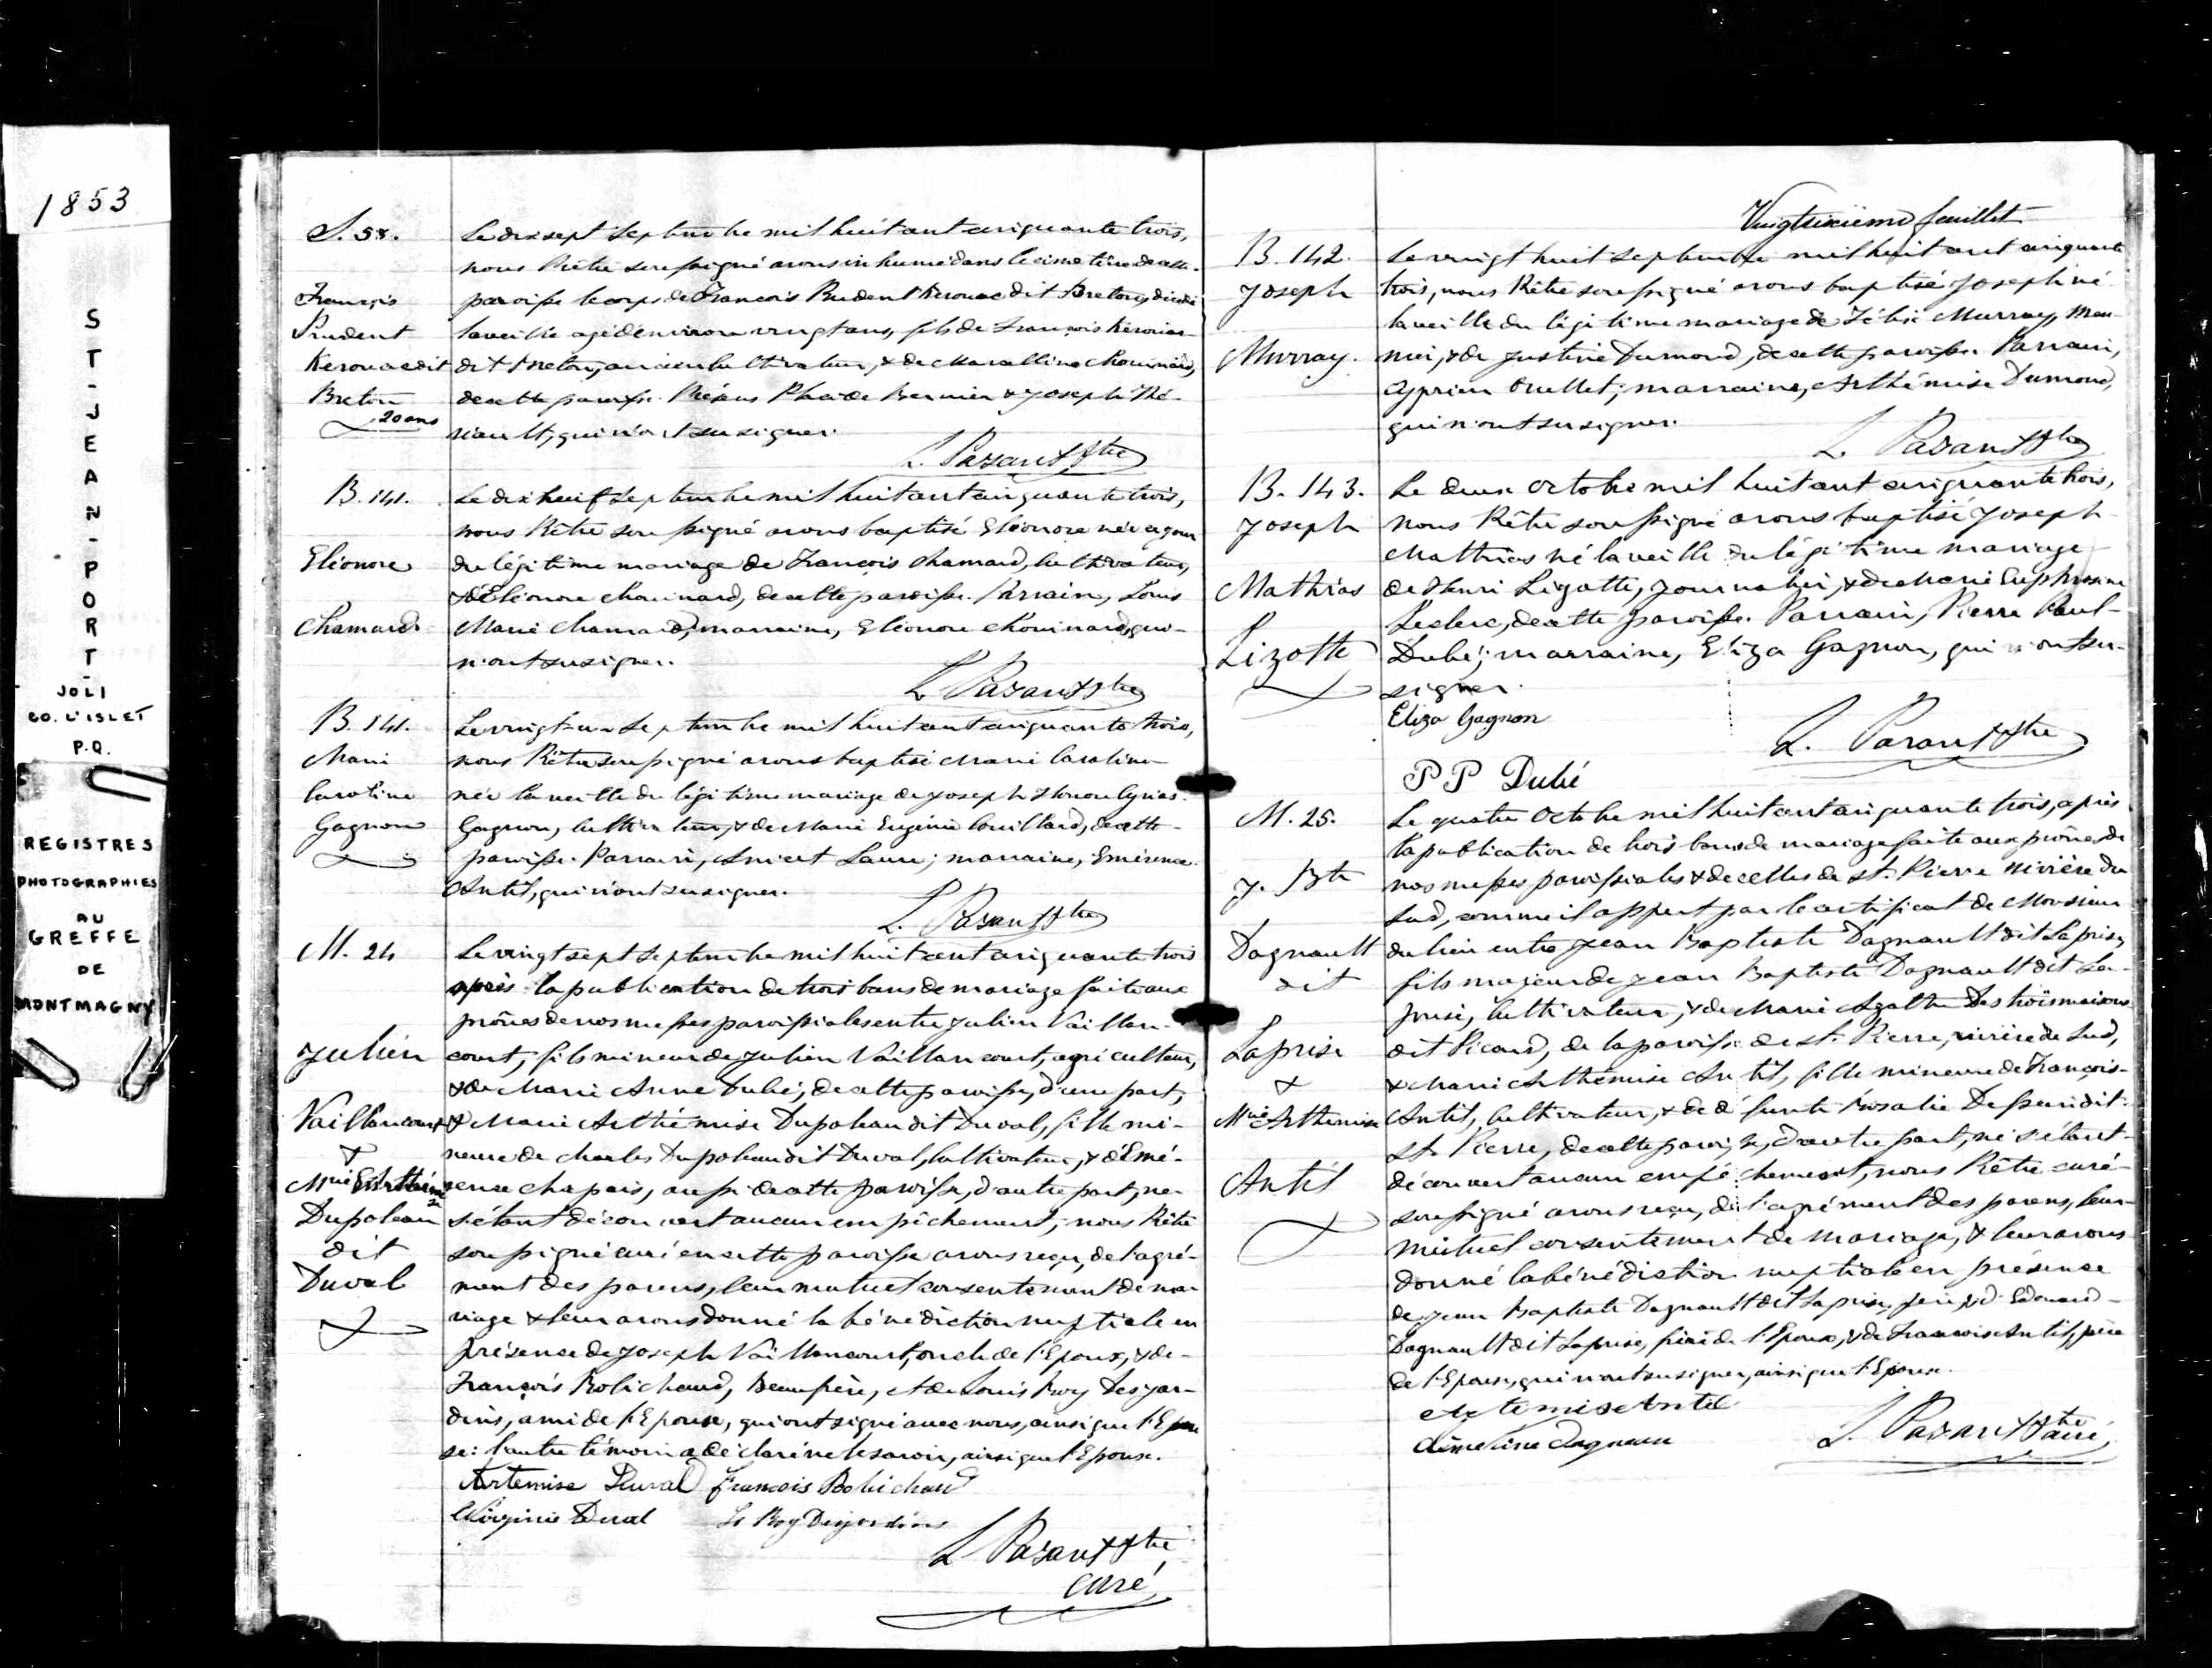 1853
ST-JEAN-PORT-
JOLI
CO. L'ISLET
P.Q.
REGISTRES
PHOTOGRAPHIES
AU
GREFFE
DE
MONTMAGNY
S. 58.
François
Prudent
Kerouac dit
Breton
20 ans
Le dix sept Septembre mil huit cent cinquante trois,
nous Prêtre soussigné avons inhumé dans le cimetière de cette
paroisse le corps de François Prudent Kerouac dit Breton, décédé
la veille agé d'environ vingt ans, fils de François Kérouac
dit Breton, ancien cultivateur, & de Marcelline Chouinard,
de cette paroisse. Présens Placide Bernier & Joseph Thé-
riault, qui n'ont su signer.
L. Parant Ptre
B. 141.
Eléonore
Chamard
Le dix huit Septembre mil huit cent cinquante trois,
nous Prêtre soussigné avons baptisé Eléonore née ce jour
du légitime mariage de François Chamard, cultivateur,
& d'Eléonore Chouinard, de cette paroisse. Parrain, Louis
Marie Chamard; marraine, Eléonore Chouinard, qui
n'ont su signer.
L. Parant Ptre
B. 141.
Marie
Caroline
Gagnon
Le vingt-un Septembre mil huit cent cinquante trois,
nous Prêtre soussigné avons baptisé Marie Caroline
née la veille du légitime mariage de Joseph
Gagnon, cultivateur, & de Marie Eugénie Couillard, de cette
paroisse. Parrain, Anicet ; marraine, Emérence
Antil, qui n'ont su signer.
L. Parant Ptre
M. 24
Julien
Vaillancourt
&
Mrie Arthémise
Dupoleau
dit
Duval
Le vingt sept Septembre mil huit cent cinquante trois
après la publication de trois bans de mariage faite aux
prônes de nos messes paroissiales entre Julien Vaillan-
court, fils mineur de Julien Vaillancourt, agriculteur,
& de Marie Anne Dubé, de cette paroisse, d'une part,
& Marie Arthémise Dupoleau dit Duval, fille mi-
neure de Charles Dupoleau dit Duval, cultivateur, & d'Emé-
rence Chapais, aussi de cette paroisse, d'autre part, ne
s'étant découvert aucun empêchement, nous Prêtre
soussigné curé en cette paroisse avons reçu, de l'agré-
ment des parens, leur mutuel consentement de ma-
riage & leur avons donné la bénédiction nuptiale en
présence de Joseph Vaillancourt, oncle de l'Epoux, & de
François Robichaud, Beaufrère, et de Louis Roy Desjar-
dins, ami de l'Epouse, qui ont signé avec nous, ainsi que l'Epou
se: l'autre témoin a déclaré ne le savoir, ainsi que l'Epoux.
Artemise Duval François Robichaud
Virginie Duval Ls Roy Desjardins
L Parant Ptre
curé
Vingtsixième feuillet
B. 142.
Joseph
Murray.
Le vingt huit Septembre mil huit cent cinquante
trois, nous Prêtre soussigné avons baptisé Joseph né
la veille du légitime mariage de Murray, Meu-
nier, & de Justine Dumond, de cette paroisse. Parrain,
Cyprien Ouellet; marraine, Arthémise Dumond,
qui n'ont su signer.
L. Parant Ptre
B. 143.
Joseph
Mathias
Lizotte
Le deux Octobre mil huit cent cinquante trois,
nous Prêtre soussigné avons baptisé Joseph
Mathias né la veille du légitime mariage
de Henri Lizotte, journalier, & de Marie Euphrosine
Leclerc, de cette paroisse. Parrain, Pierre Paul
Dubé; marraine, Eliza Gagnon, qui n'ont su
signer.
Eliza Gagnon
L. Parant Ptre
P P Dubé
M. 25.
J. Bte
Dagnault
dit
Laprise
&
Mrie Arthemise
Antil
Le quatre Octobre mil huit cent cinquante trois, après
la publication de trois bans de mariage faite aux prônes de
nos messes paroissiales & de celles de St. Pierre rivière du
Sud, comme il appert par le certificat de Monsieur
du lieu entre Jean Baptiste Dagnault dit Laprise,
fils majeur de Jean Baptiste Dagnault dit La-
prise, cultivateur, & de Marie Agathe Destroismaisons
dit Picard, de la paroisse de St. Pierre, rivière du Sud,
& Marie Arthémise Antil, fille mineure de François
Antil, cultivateur, & de défunte Rosalie Dessein dit
St. Pierre, de cette paroisse, d'autre part, ne s'étant
découvert aucun empêchement, nous Prêtre curé
soussigné avons reçu, de l'agrément des parens, leur
mutuel consentement de mariage, & leur avons
donné la bénédiction nuptiale en présence
de Jean Baptiste Dagnault dit Laprise, père, & d'Edouard
Dagnault dit Laprise, frère de l'Epoux, & de François Antil, père
de l'Epouse, qui n'ont su signer, ainsi que l'Epoux.
Artemise Antil
Emeline Dagneau
L. Parant Ptre
curé